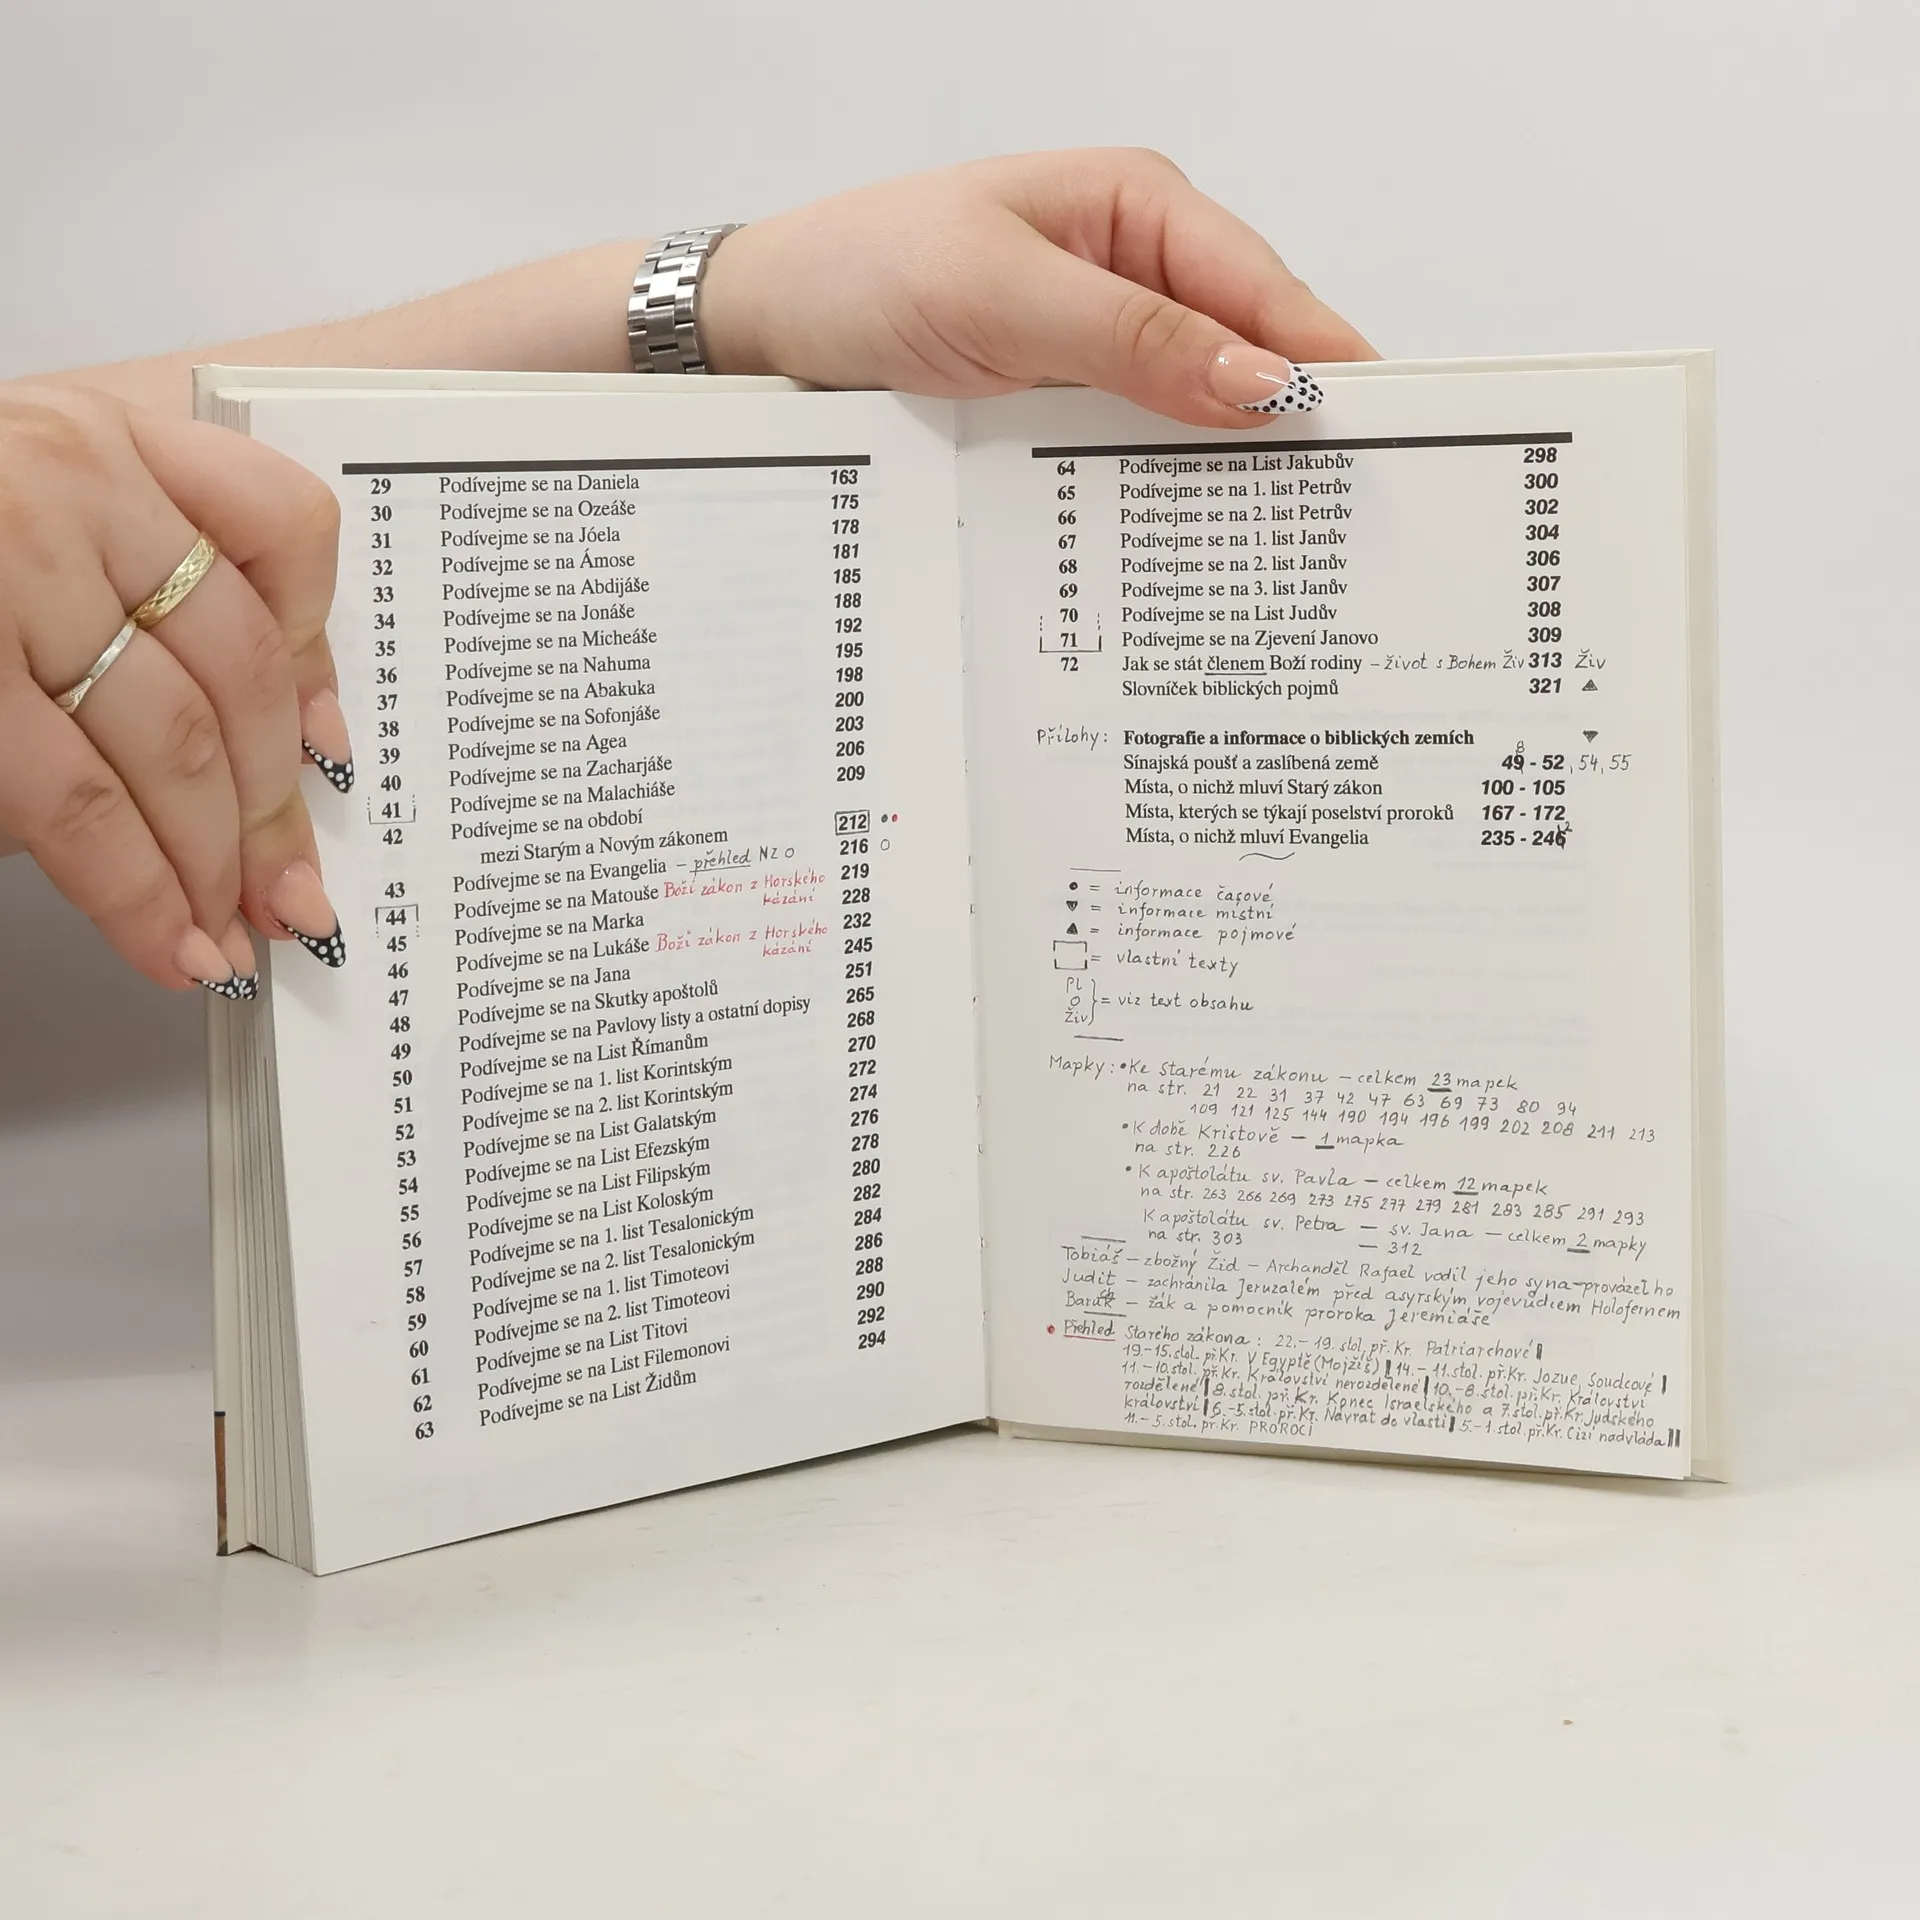 29 Podívejme se na Daniela 163
30 Podívejme se na Ozeáše 175
31 Podívejme se na Jóela 178
32 Podívejme se na Ámose 181
33 Podívejme se na Abdijáše 185
34 Podívejme se na Jonáše 188
35 Podívejme se na Micheáše 192
36 Podívejme se na Nahuma 195
37 Podívejme se na Abakuka 198
38 Podívejme se na Sofonjáše 200
39 Podívejme se na Agea 203
40 Podívejme se na Zacharjáše 206
41 Podívejme se na Malachiáše 209
42 Podívejme se na období
mezi Starým a Novým zákonem 212
43 Podívejme se na Evangelia – přehled NZ O 216 O
44 Podívejme se na Matouše Boží zákon z Horského 219
kázání
45 Podívejme se na Marka 228
46 Podívejme se na Lukáše Boží zákon z Horského 232
kázání
47 Podívejme se na Jana 245
48 Podívejme se na Skutky apoštolů 251
49 Podívejme se na Pavlovy listy a ostatní dopisy 265
50 Podívejme se na List Římanům 268
51 Podívejme se na 1. list Korintským 270
52 Podívejme se na 2. list Korintským 272
53 Podívejme se na List Galatským 274
54 Podívejme se na List Efezským 276
55 Podívejme se na List Filipským 278
56 Podívejme se na List Koloským 280
57 Podívejme se na 1. list Tesalonickým 282
58 Podívejme se na 2. list Tesalonickým 284
59 Podívejme se na 1. list Timoteovi 286
60 Podívejme se na 2. list Timoteovi 288
61 Podívejme se na List Titovi 290
62 Podívejme se na List Filemonovi 292
63 Podívejme se na List Židům 294
64 Podívejme se na List Jakubův 298
65 Podívejme se na 1. list Petrův 300
66 Podívejme se na 2. list Petrův 302
67 Podívejme se na 1. list Janův 304
68 Podívejme se na 2. list Janův 306
69 Podívejme se na 3. list Janův 307
70 Podívejme se na List Judův 308
71 Podívejme se na Zjevení Janovo 309
72 Jak se stát členem Boží rodiny – život s Bohem Živ 313 Živ
Slovníček biblických pojmů 321 ▲
Přílohy: Fotografie a informace o biblických zemích ▼
Sínajská poušť a zaslíbená země 49 - 52, 54, 55
Místa, o nichž mluví Starý zákon 100 - 105
Místa, kterých se týkají poselství proroků 167 - 172
Místa, o nichž mluví Evangelia 235 - 246
● = informace časové
▼ = informace místní
▲ = informace pojmové
= vlastní texty
Pl
O } = viz text obsahu
Živ
Mapky: • Ke starému zákonu – celkem 23 mapek
na str. 21 22 31 37 42 47 63 69 73 80 94
109 121 125 144 190 194 196 199 202 208 211 213
• K době Kristově – 1 mapka
na str. 226
• K apoštolátu sv. Pavla – celkem 12 mapek
na str. 263 266 269 273 275 277 279 281 283 285 291 293
K apoštolátu sv. Petra – sv. Jana – celkem 2 mapky
na str. 303 – 312
Tobiáš – zbožný Žid – Archanděl Rafael vodil jeho syna – provázel ho
Judit – zachránila Jeruzalém před asyrským vojevůdcem Holofernem
Baruk – žák a pomocník proroka Jeremiáše
• Přehled Starého zákona: 22.-19. stol. př. Kr. Patriarchové |
19.-15. stol. př. Kr. V Egyptě (Mojžíš) | 14.-11. stol. př. Kr. Jozue, Soudcové |
11.-10. stol. př. Kr. Království nerozdělené | 10.-8. stol. př. Kr. Království
rozdělené | 8. stol. př. Kr. Konec Israelského a 7. stol. př. Kr. Judského
království | 6.-5. stol. př. Kr. Návrat do vlasti | 5.-1. stol. př. Kr. Cizí nadvláda ||
11.-5. stol. př. Kr. PROROCI